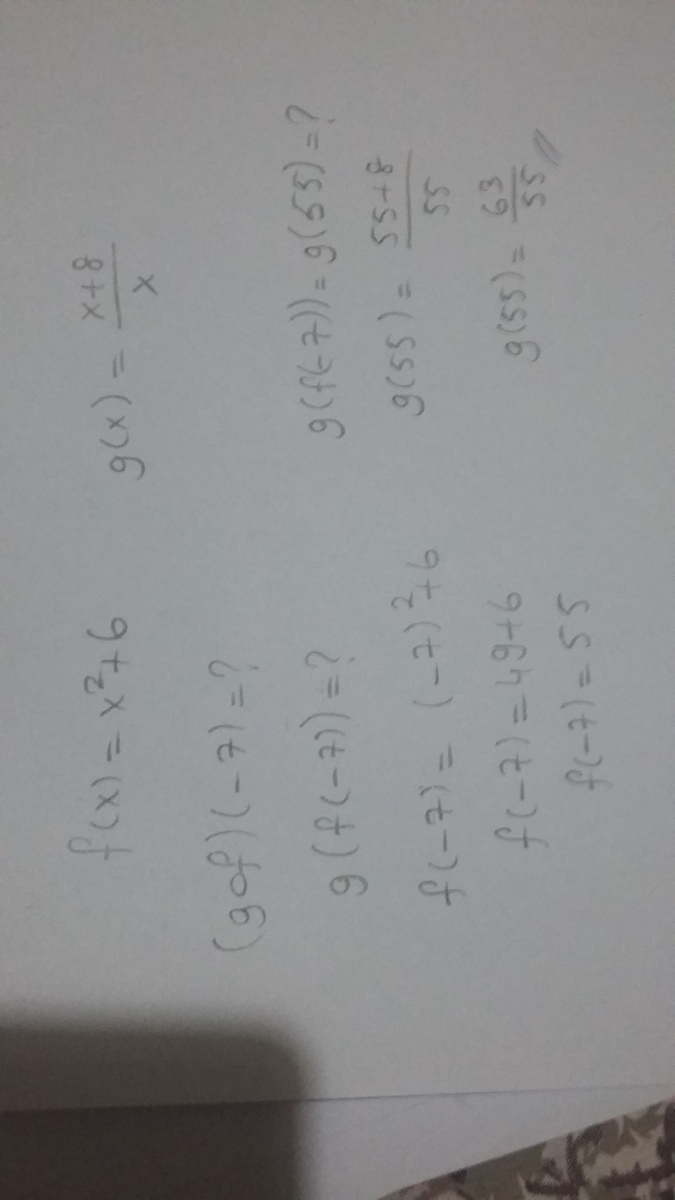 f(x) = x²+6
g(x) = x+8/x
(gof)(-7) = ?
g(f(-7)) = ?
f(-7) = (-7)²+6
f(-7) = 49+6
f(-7) = 55
g(f(-7)) = g(55) = ?
g(55) = 55+8/55
g(55) = 63/55 //